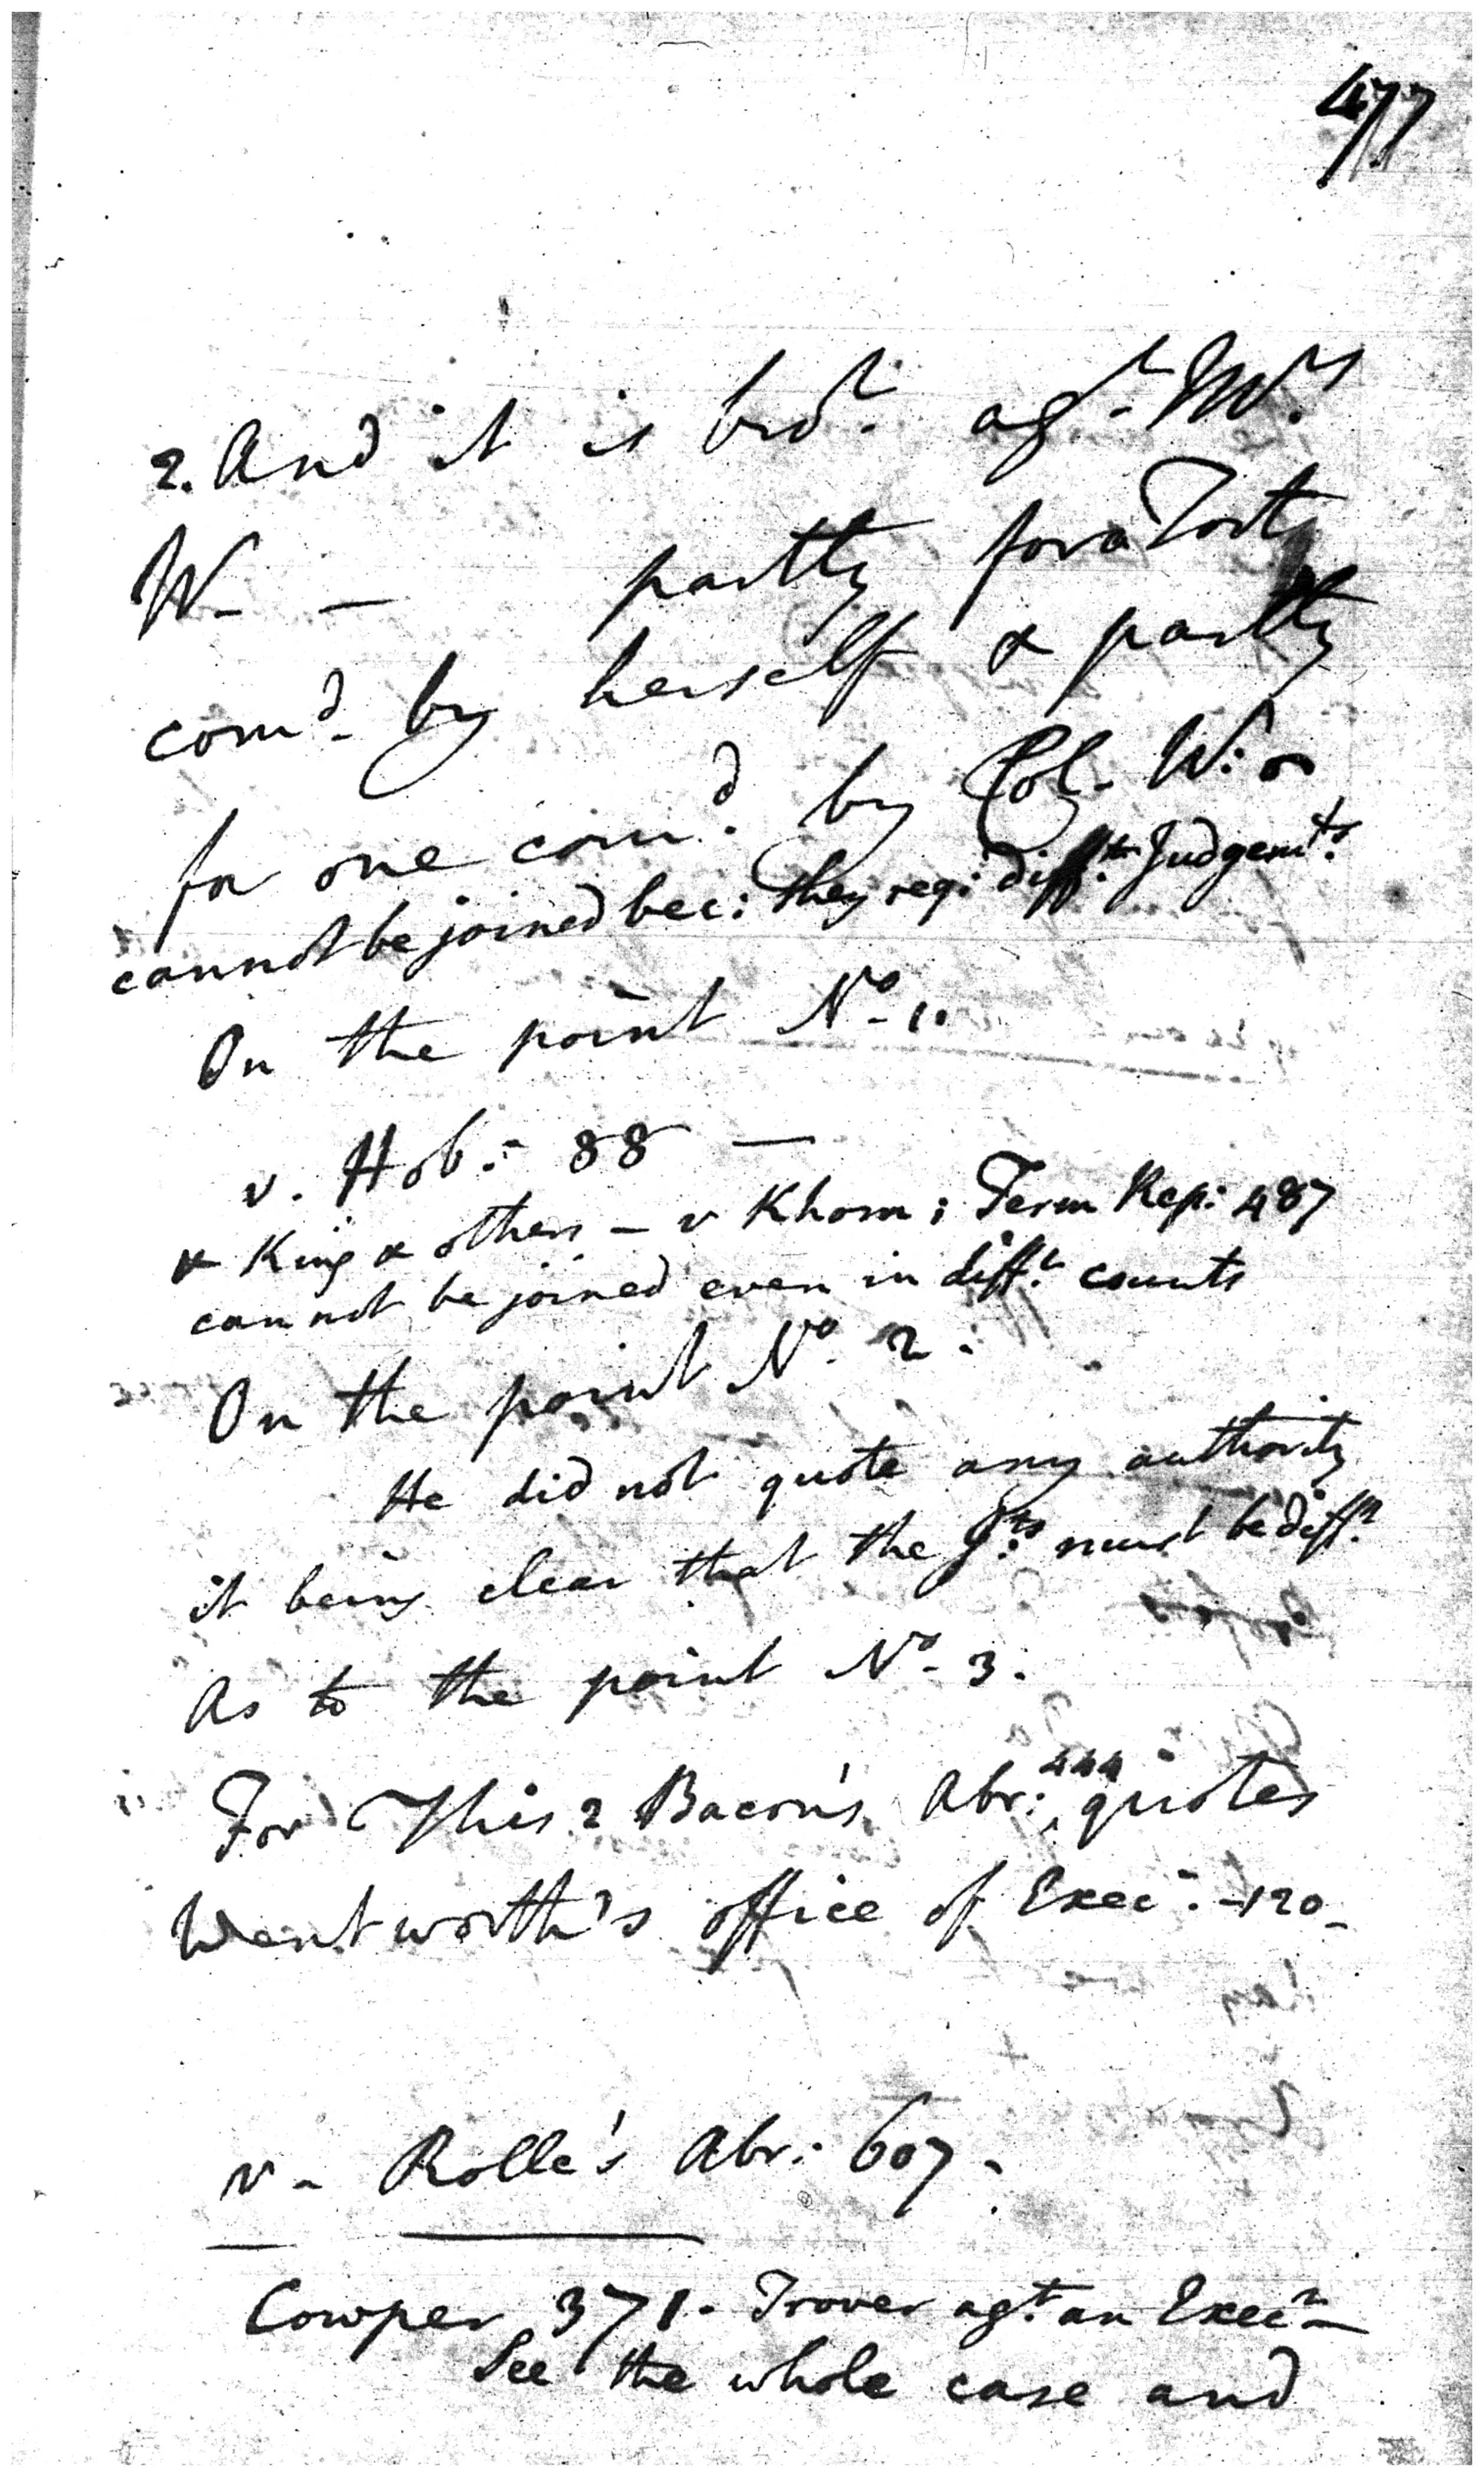 477
2. And it is bro.t ag.t Mrs
W— — partly for a Tort
com.d by herself & partly
for one com.d by Col. W:
cannot be joined bec: they req: diff.t Judgem.ts
On the point No. 1.
v. Hob: 88 —
& King & others — v Khom; Term Rep: 487
cannot be joined even in diff.t counts
On the point No. 2.
He did not quote any authority
it being clear that the J.ts must be diff.t
As to the point No. 3.
For This 2 Bacon's Abr: 444 quotes
Wentworth's office of Exec.r —120—
v— Rolle's Abr: 607.
Cowper 371. Trover ag.t an Exec.r —
See the whole case and